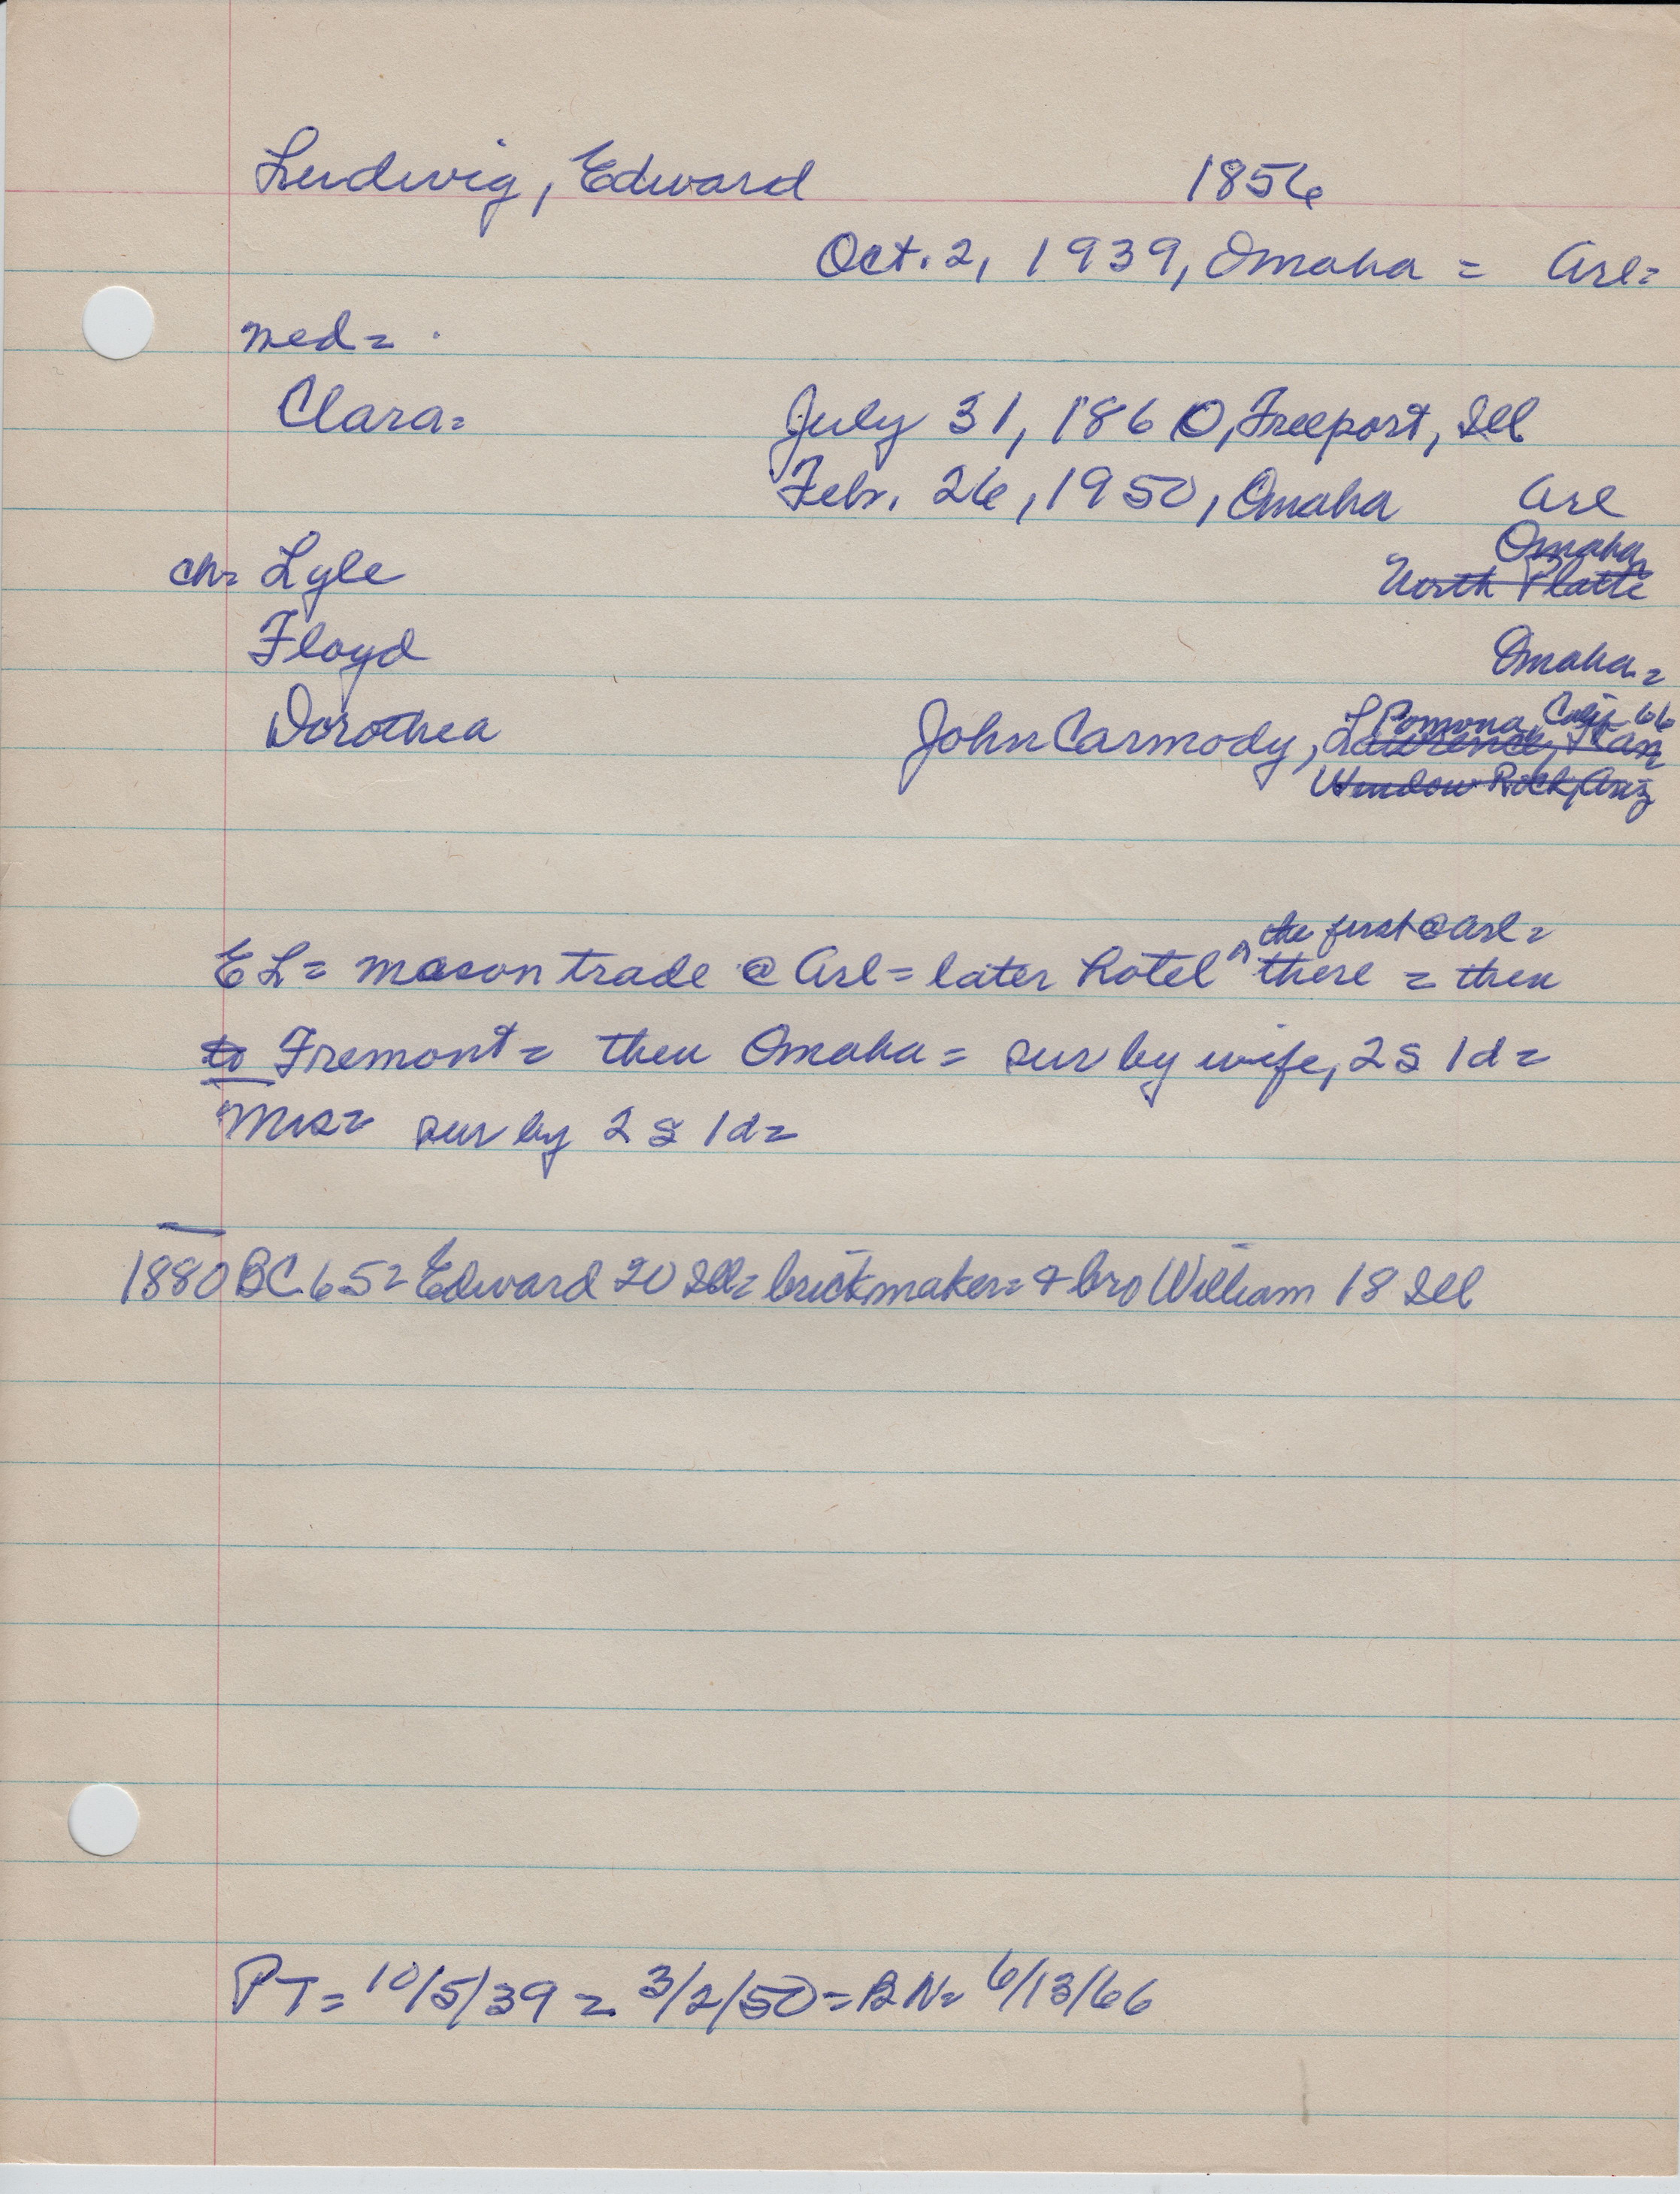 Ludwig, Edward 1856
Oct. 2, 1939, Omaha = Arl=
med=
Clara= July 31, 1860, Freeport, Ill
Febr. 26, 1950, Omaha Arl
Omaha
ch= Lyle North Platte
Floyd Omaha=
Pomona, Calif 66
Dorothea John Carmody, Lawrence, Kan
Window Rock, Ariz
the first @ Arl=
EL= mason trade @ Arl= later hotel ^ there = then
to Fremont= then Omaha= sur by wife, 2s 1d=
Mrs= sur by 2s 1d=
1880 BC 65= Edward 20 Ill= brickmaker= & bro William 18 Ill
PT= 10/5/39 = 3/2/50= BN= 6/13/66